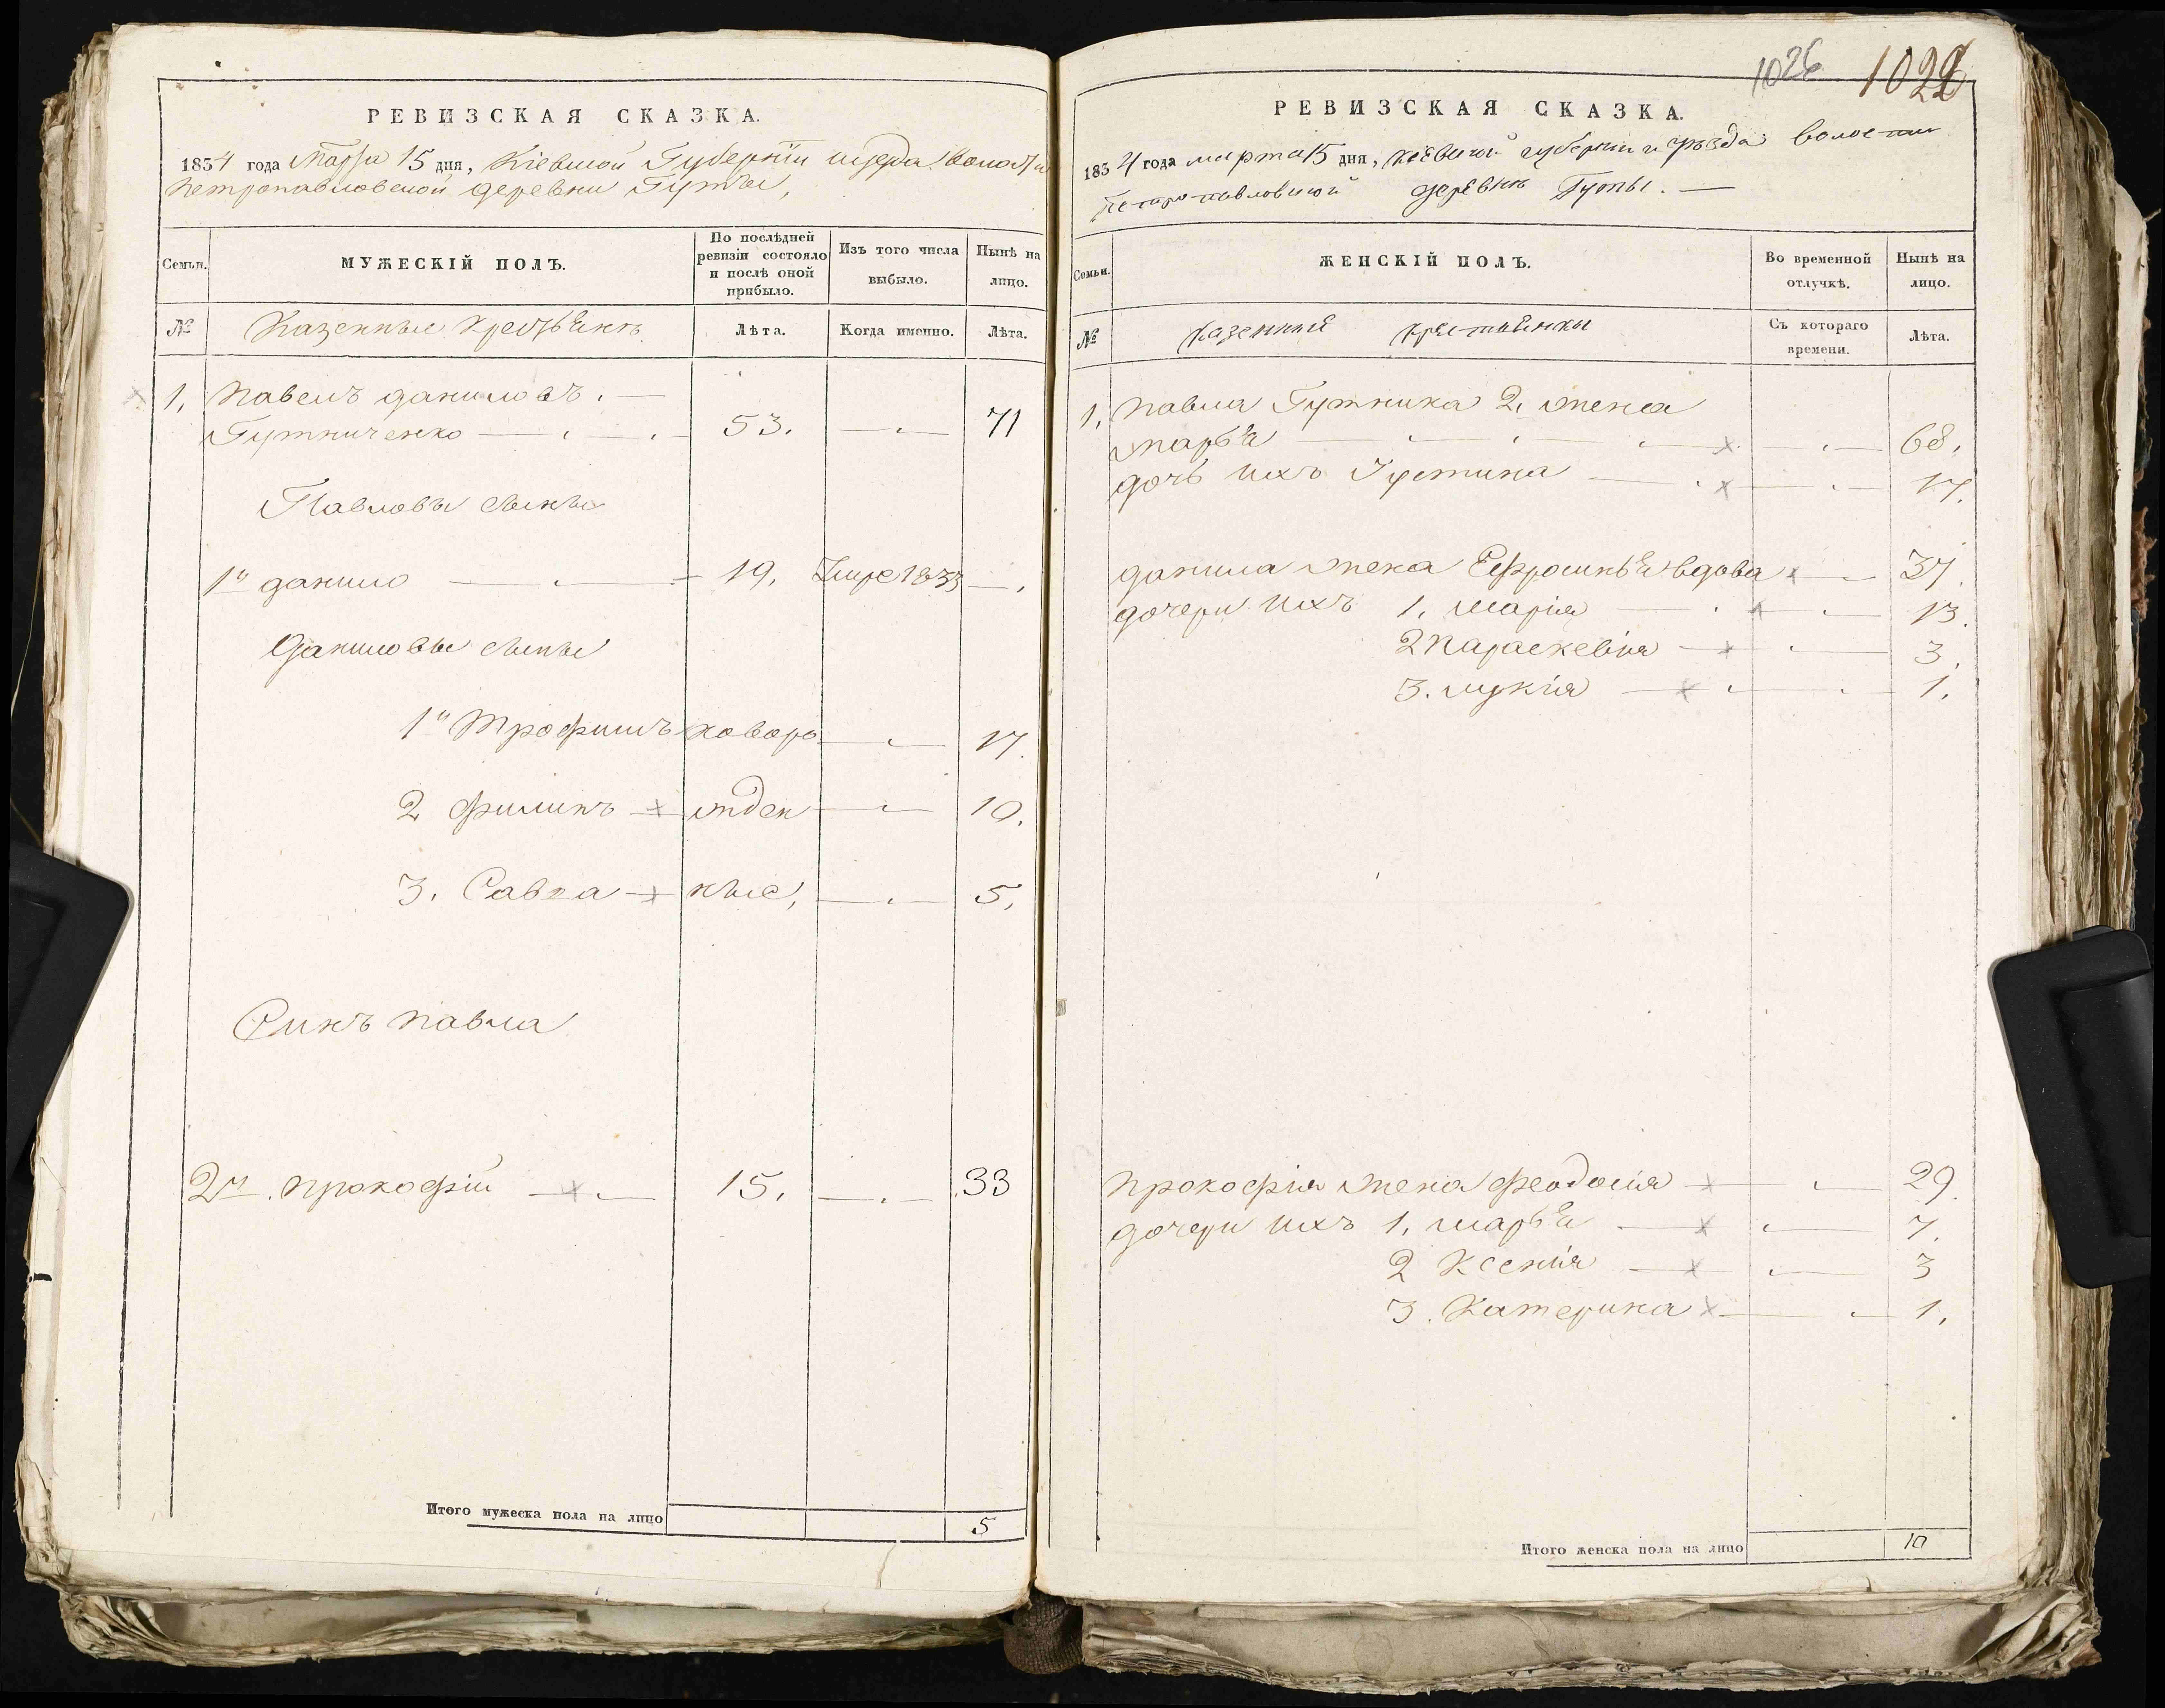 РЕВИЗСКАЯ СКАЗКА.
1834 года Марта 15 дня, Кіевской Губерніи и уезда Волости
Петропавловской деревни Гуты,
Семьи.
МУЖЕСКІЙ ПОЛЪ.
По послѣдней ревизіи состояло и послѣ оной прибыло.
Изъ того числа выбыло.
Нынѣ на лицо.
№
Казенные Крестьяне
Лѣта.
Когда именно.
Лѣта.
1. Павелъ даниловъ.
Гутниченко 53. 71
Павловы сыны
1й данило 19. Умре 1833
Даниловы сыны
1й Трофимъ новоро 17.
2 филипъ жден 10.
3. Савка ные, 5,
Синъ павла
2й. прокофій 15. 33
Итого мужеска пола на лицо 5
1026 1022
РЕВИЗСКАЯ СКАЗКА.
1834 года марта 15 дня, кіевской губерніи и уѣзда волости
петропавловской деревнѣ Гуты.
Семьи.
ЖЕНСКІЙ ПОЛЪ.
Во временной отлучкѣ.
Нынѣ на лицо.
№
казенніе крестьянки
Съ котораго времени.
Лѣта.
1. павла Гутника 2. жена
марья 68.
дочь ихъ Устина 17.
данила жена Ефросинья вдова 37.
дочери ихъ 1. марія 13.
2 Параскевія 3.
3. лукія 1.
прокофія жена феодосія 29.
дочери ихъ 1. марья 7.
2 Ксенія 3
3. Катерина 1.
Итого женска пола на лицо 10